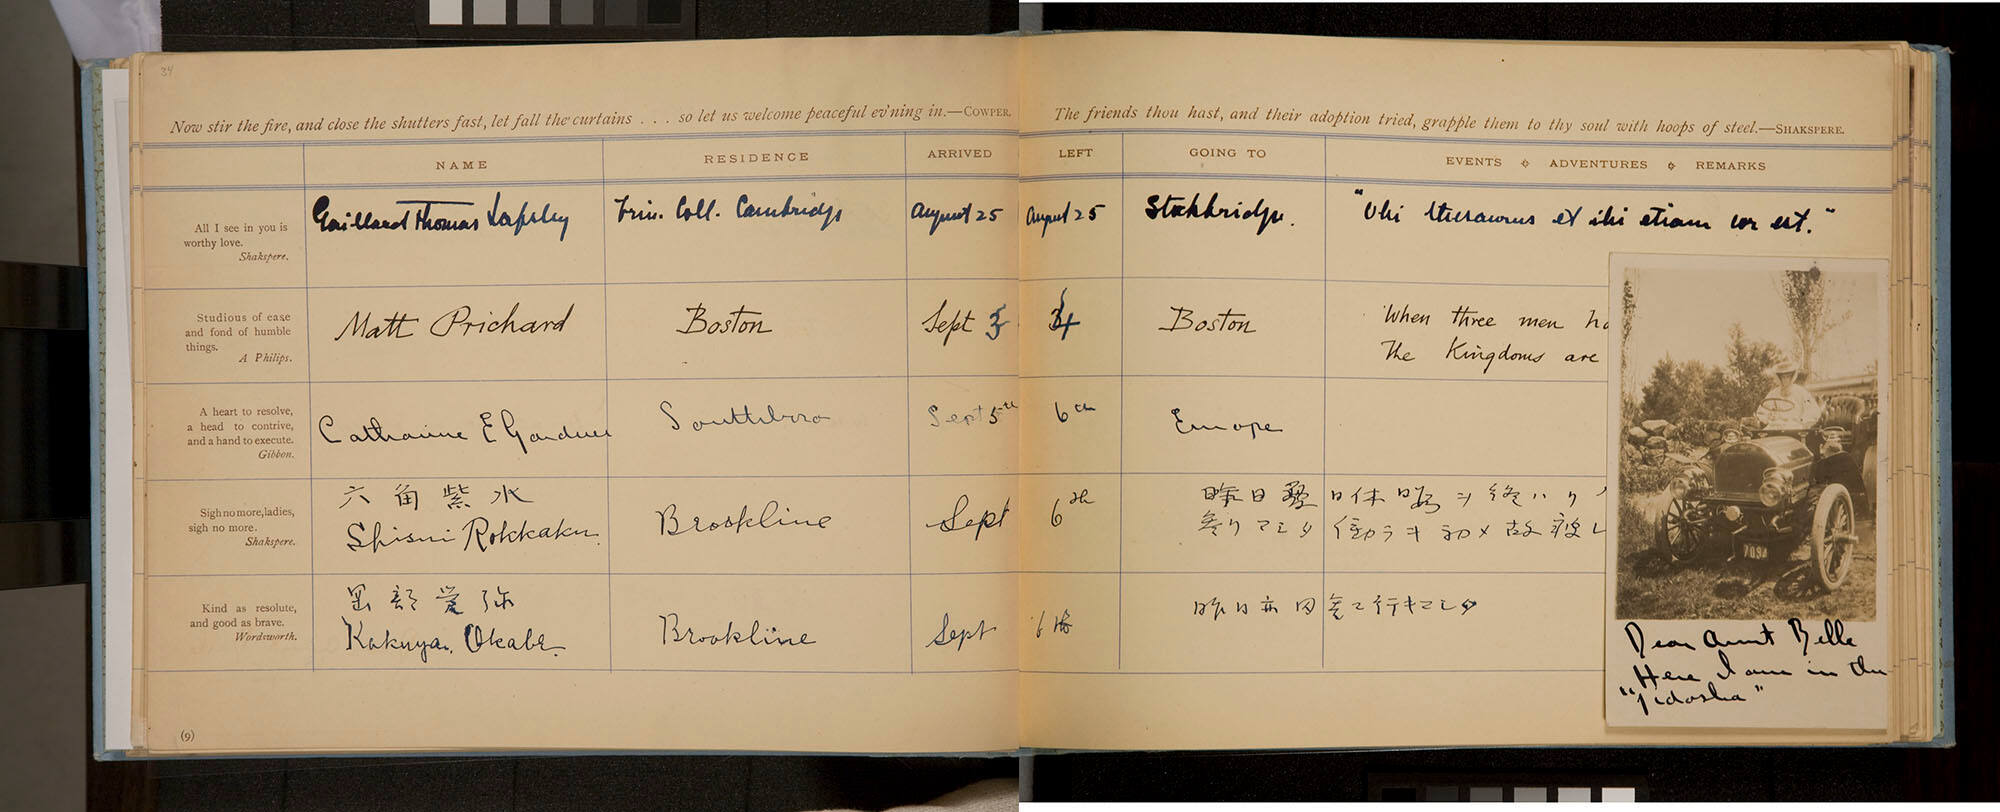 34
Now stir the fire, and close the shutters fast, let fall the curtains . . . so let us welcome peaceful ev'ning in.—COWPER.
The friends thou hast, and their adoption tried, grapple them to thy soul with hoops of steel.—SHAKSPERE.
NAME RESIDENCE ARRIVED LEFT GOING TO EVENTS ADVENTURES REMARKS
All I see in you is
worthy love.
Shakspere.
Gaillard Thomas Lapsley Trin. Coll. Cambridge August 25 August 25 Stockbridge. "Ubi thesaurus et ibi etiam cor est."
Studious of ease
and fond of humble
things.
A Philips.
Matt Prichard Boston Sept Boston
When three men
The Kingdoms are
A heart to resolve,
a head to contrive,
and a hand to execute.
Gibbon.
Catharine E Gardner Southboro Sept 5th 6th Europe
Sigh no more, ladies,
sigh no more.
Shakspere.
六角紫水
Shisui Rokkaku Brookline Sept 6th
昨日
マシタ
Kind as resolute,
and good as brave.
Wordsworth.
岡部覚弥
Kakuya Okabe Brookline Sept 6th
昨日 行キマシタ
7094
Dear Aunt Belle
Here I am in the
"Jidosha"
(9)